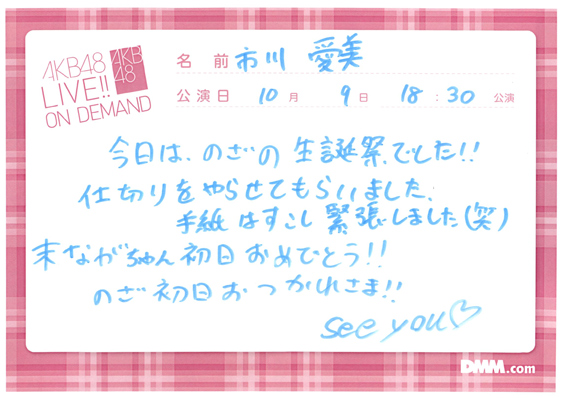 AKB48
LIVE!!
ON DEMAND
AKB
48
名前 市川 愛美
公演日 10月 9日 18:30 公演
今日は、のざの生誕祭でした!!
仕切りをやらせてもらいました、
手紙はすこし緊張しました(笑)
末ながちゃん初日おめでとう!!
のざ初日おつかれさま!!
see you♡
DMM.com